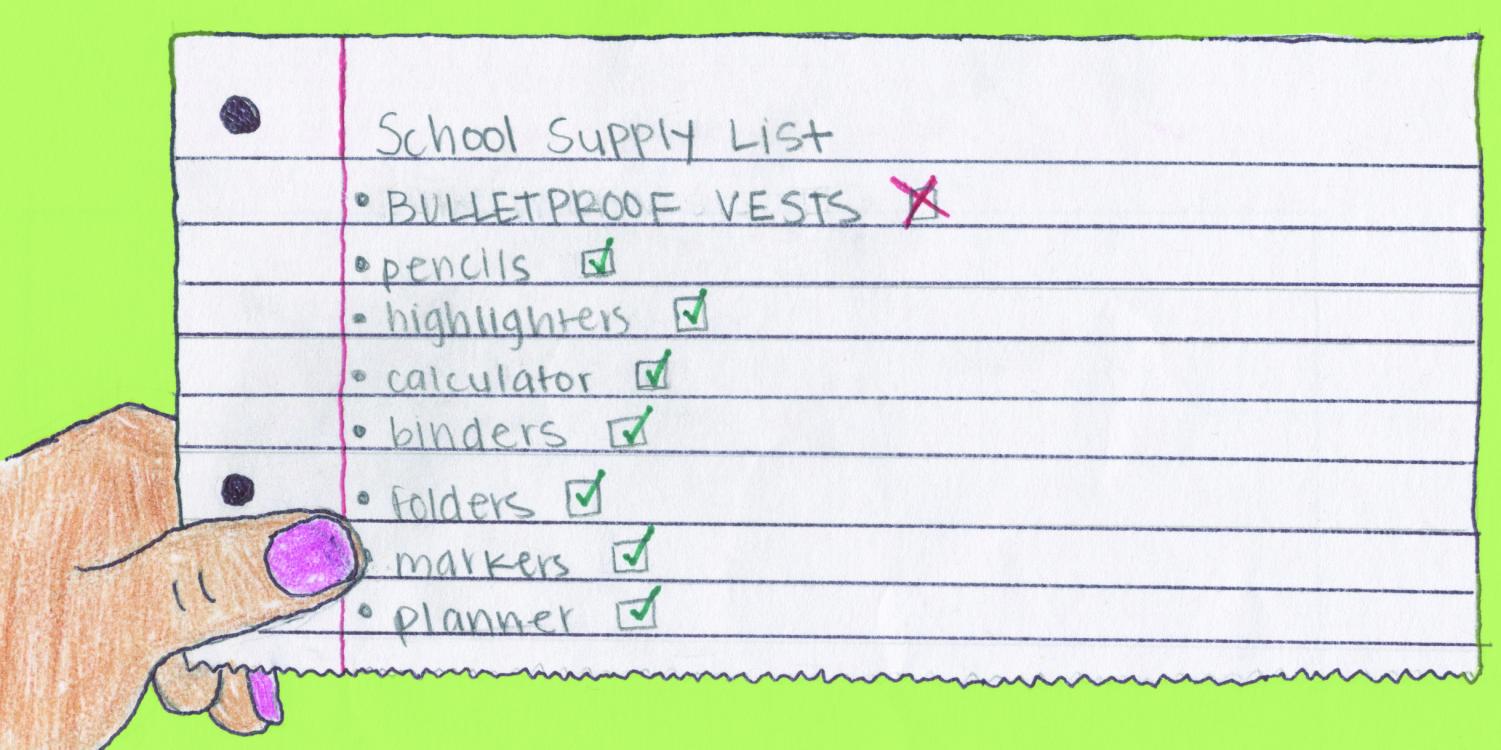 School Supply List
• BULLETPROOF VESTS
• pencils
• highlighters
• calculator
• binders
• folders
• markers
• planner